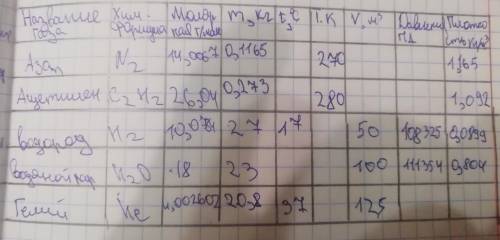 Название газа Хим. формула Молярная m, кг t, °C T, K V, м³ Давление Па Плотность
Азот N₂ 14,0067 0,1165 270 1,165
Ацетилен C₂H₂ 26,04 0,273 280 1,092
водород H₂ 27 17 50 108325 0,0899
водяной пар H₂O 18 23 100 111354 0,804
Гелий He 4,002602 20,8 37 125